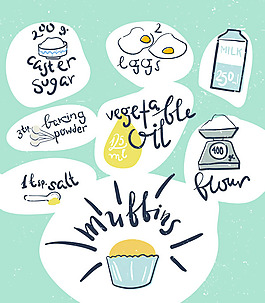 200 g.
caster
sugar
2
eggs
MILK
250
3 tsp
baking
powder
vegetable
oil
125
ml
1 tsp. salt
400
flour
muffins